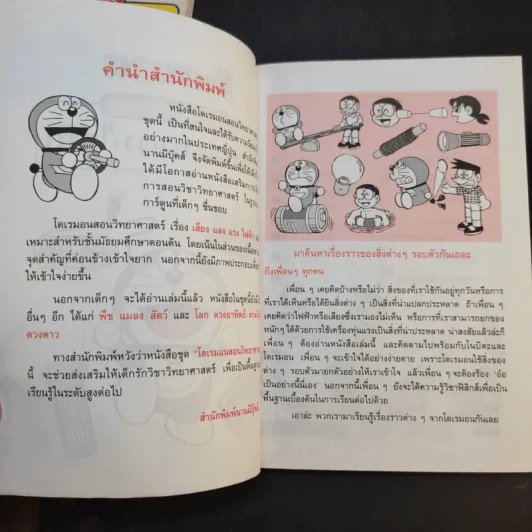 คำนำสำนักพิมพ์
หนังสือโดเรมอนสอนวิทยาศาสตร์
ชุดนี้ เป็นที่สนใจและได้รับความนิยม
อย่างมากในประเทศญี่ปุ่น สำนักพิมพ์
นานมีบุ๊คส์ จึงจัดพิมพ์ขึ้นเพื่อให้เด็กๆ
ได้มีโอกาสอ่านหนังสือเสริมการเรียน
การสอนวิชาวิทยาศาสตร์ ในรูปแบบ
การ์ตูนที่เด็กๆ ชื่นชอบ
โดเรมอนสอนวิทยาศาสตร์ เรื่อง เสียง แสง แรง ไฟฟ้า
เหมาะสำหรับชั้นมัธยมศึกษาตอนต้น โดยเน้นในส่วนของเนื้อหา
จุดสำคัญที่ค่อนข้างเข้าใจยาก นอกจากนี้ยังมีภาพประกอบ
ให้เข้าใจง่ายขึ้น
นอกจากเด็กๆ จะได้อ่านเล่มนี้แล้ว หนังสือชุดนี้ยังมี
อื่นๆ อีก ได้แก่ พืช แมลง สัตว์ และ โลก ดวงอาทิตย์
ดวงดาว
ทางสำนักพิมพ์หวังว่าหนังสือชุด "โดเรมอนสอนวิทยาศาสตร์
นี้ จะช่วยส่งเสริมให้เด็กรักวิชาวิทยาศาสตร์ เพื่อเป็นพื้นฐาน
เรียนรู้ในระดับสูงต่อไป
สำนักพิมพ์นานมีบุ๊คส์
มาค้นหาเรื่องราวของสิ่งต่างๆ รอบตัวกันเถอะ
ถึงเพื่อนๆ ทุกคน
เพื่อน ๆ เคยคิดบ้างหรือไม่ว่า สิ่งของที่เราใช้กันอยู่ทุกวันหรือการ
ที่เราได้เห็นหรือได้ยินสิ่งต่าง ๆ เป็นสิ่งที่น่าแปลกประหลาด ถ้าเพื่อน ๆ
เคยคิดว่าไฟฟ้าหรือเสียงซึ่งเรามองไม่เห็น หรือการที่เราสามารถยกของ
หนักๆ ได้ด้วยการใช้เครื่องทุ่นแรงเป็นสิ่งที่น่าประหลาด น่าสงสัยแล้วล่ะก็
เพื่อน ๆ ต้องอ่านหนังสือเล่มนี้ และติดตามไปพร้อมกับโนบิตะและ
โดเรมอน เพื่อน ๆ จะเข้าใจได้อย่างง่ายดาย เพราะโดเรมอนใช้สิ่งของ
ต่าง ๆ รอบตัวมายกตัวอย่างให้เราเข้าใจ แล้วเพื่อนๆ จะต้องร้อง 'อ๋อ
เป็นอย่างนี้นี่เอง' นอกจากนี้เพื่อนๆ ยังจะได้ความรู้วิชาฟิสิกส์เพื่อเป็น
พื้นฐานเบื้องต้นในการเรียนต่อไปด้วย
เอาล่ะ พวกเรามาเรียนรู้เรื่องราวต่าง ๆ จากโดเรมอนกันเลย